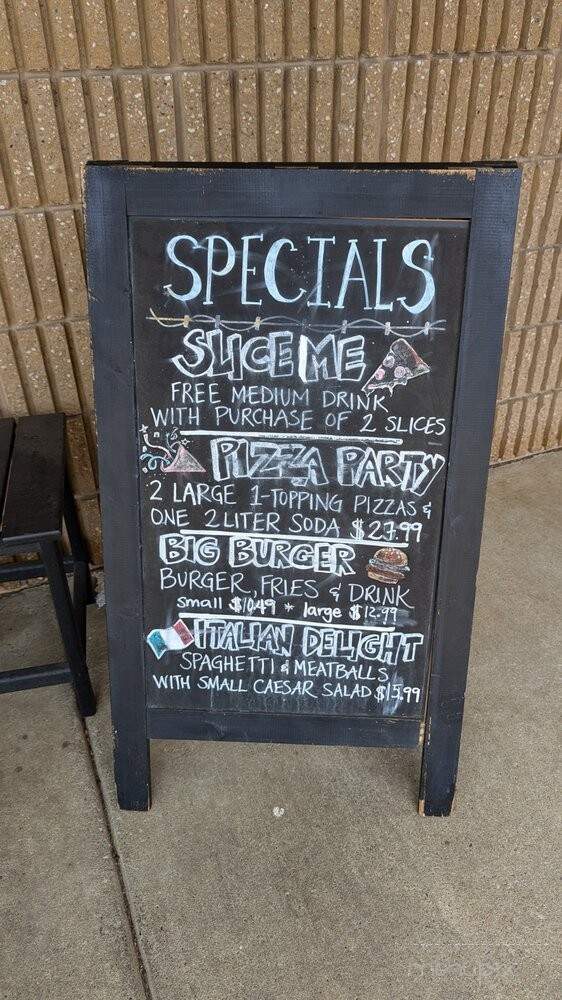 SPECIALS
SLICE ME
FREE MEDIUM DRINK
WITH PURCHASE OF 2 SLICES
PIZZA PARTY
2 LARGE 1-TOPPING PIZZAS &
ONE 2 LITER SODA $27.99
BIG BURGER
BURGER, FRIES & DRINK
small $10.49 * large $12.99
ITALIAN DELIGHT
SPAGHETTI & MEATBALLS
WITH SMALL CAESAR SALAD $15.99
menupix